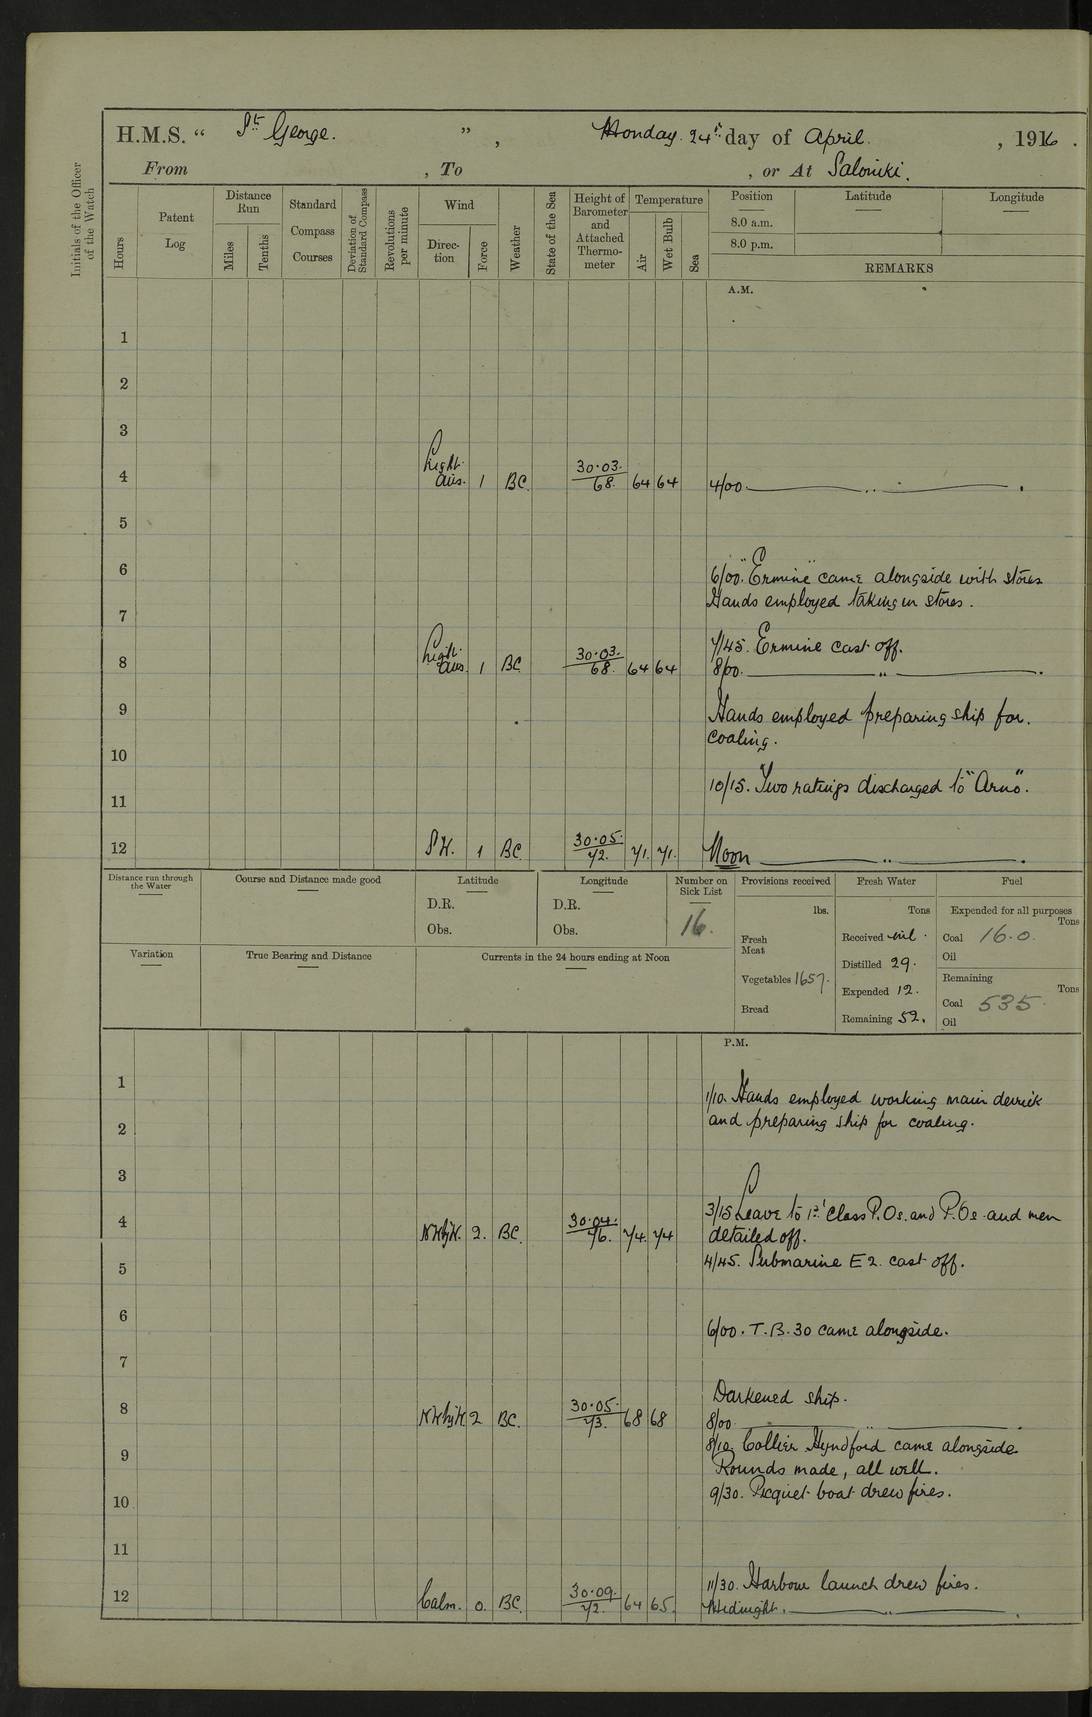 H.M.S. “ St. George. ” , Monday. 24th day of April. , 1916 .
From , To , or At Saloniki.
Initials of the Officer of the Watch
Hours
Patent Log
Distance Run
Miles
Tenths
Standard Compass Courses
Deviation of Standard Compass
Revolutions per minute
Wind
Direction
Force
Weather
State of the Sea
Height of Barometer and Attached Thermometer
Temperature
Air
Wet Bulb
Sea
Position Latitude Longitude
8.0 a.m.
8.0 p.m.
REMARKS
A.M.
1
2
3
4 Light airs. 1 BC. 30.03. 68. 64 64 4/00
5
6 6/00. "Ermine" came alongside with stores
Hands employed taking in stores.
7
7/45. Ermine cast off.
8 Light airs. 1 BC 30.03. 68. 64 64 8/00.
9 Hands employed preparing ship for.
coaling.
10
10/15. Two ratings discharged to "Arno".
11
12 SW. 1 BC 30.05. 72. 71. 71. Noon
Distance run through the Water
Course and Distance made good
Latitude
D.R.
Obs.
Longitude
D.R.
Obs.
Number on Sick List
16.
Provisions received
lbs.
Fresh Meat
Vegetables 1657.
Bread
Fresh Water
Tons
Received nil.
Distilled 29.
Expended 12.
Remaining 52.
Fuel
Expended for all purposes
Tons
Coal 16.0.
Oil
Remaining
Tons
Coal 535.
Oil
Variation
True Bearing and Distance
Currents in the 24 hours ending at Noon
P.M.
1 1/10. Hands employed working main derrick
2 and preparing ship for coaling.
3
3/15 Leave to 1st Class P.Os. and P.Os. and men
4 NWbyW. 2. BC. 30.04. 76. 74. 74 detailed off.
5 4/45. Submarine E 2. cast off.
6 6/00. T.B. 30 came alongside.
7
Darkened ship.
8 NWbyW. 2 BC. 30.05. 73. 68 68 8/00.
8/10. Collier Hyndford came alongside
9 Rounds made, all well.
10 9/30. Picquet boat drew fires.
11
11/30. Harbour launch drew fires.
12 Calm. 0. BC. 30.09. 72. 64 65. Midnight.